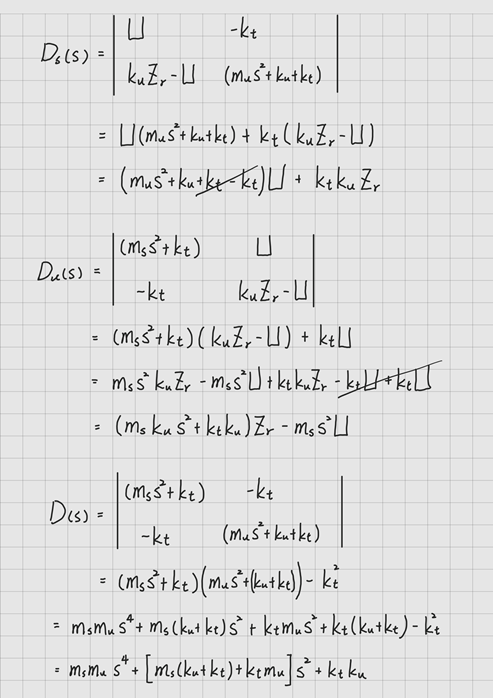 Dₛ(s) = | U   -kₜ |
| kᵤZᵣ - U   (mᵤs² + kᵤ + kₜ) |
= U(mᵤs² + kᵤ + kₜ) + kₜ(kᵤZᵣ - U)
= (mᵤs² + kᵤ + kₜ - kₜ)U + kₜkᵤZᵣ
Dᵤ(s) = | (mₛs² + kₜ)   U |
| -kₜ   kᵤZᵣ - U |
= (mₛs² + kₜ)(kᵤZᵣ - U) + kₜU
= mₛs²kᵤZᵣ - mₛs²U + kₜkᵤZᵣ - kₜU + kₜU
= (mₛkᵤs² + kₜkᵤ)Zᵣ - mₛs²U
D(s) = | (mₛs² + kₜ)   -kₜ |
| -kₜ   (mᵤs² + kᵤ + kₜ) |
= (mₛs² + kₜ)(mᵤs² + (kᵤ + kₜ)) - kₜ²
= mₛmᵤs⁴ + mₛ(kᵤ + kₜ)s² + kₜmᵤs² + kₜ(kᵤ + kₜ) - kₜ²
= mₛmᵤs⁴ + [mₛ(kᵤ + kₜ) + kₜmᵤ]s² + kₜkᵤ